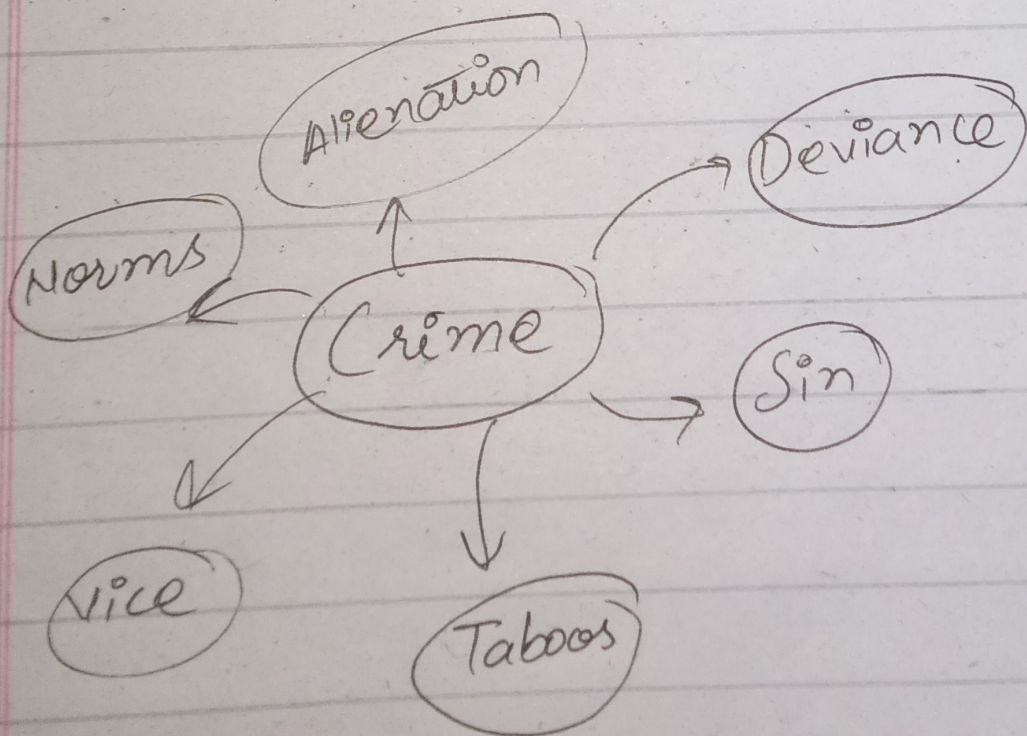 Alienation
Deviance
Norms
Crime
Sin
Vice
Taboos